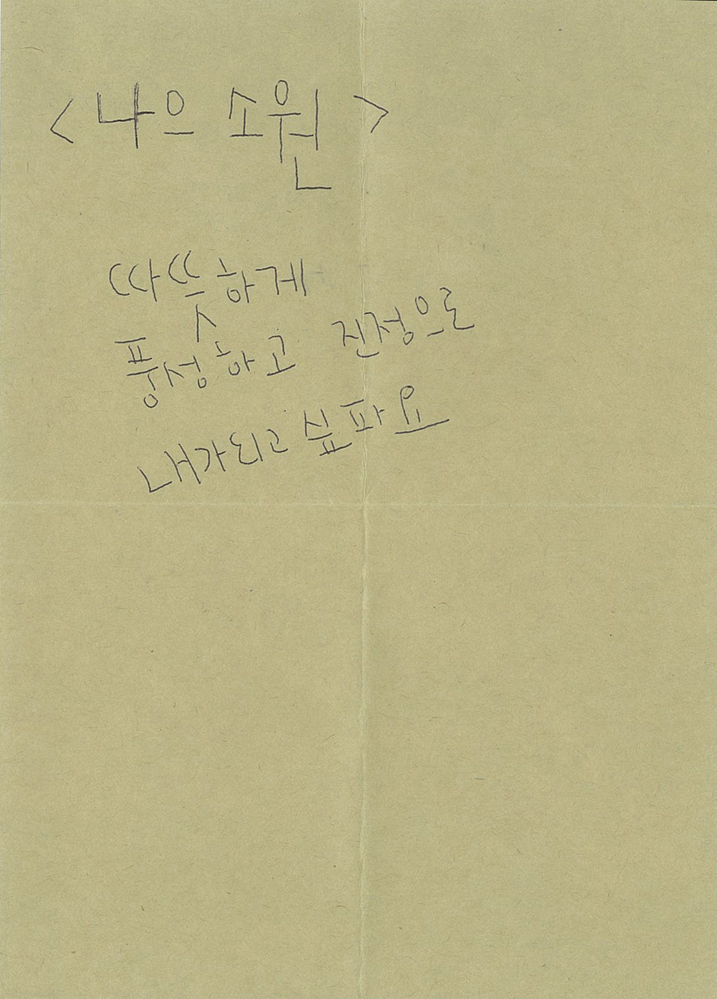 <나으 소원>
따뜻하게
풍성하고 진정으로
내가되고 싶파요